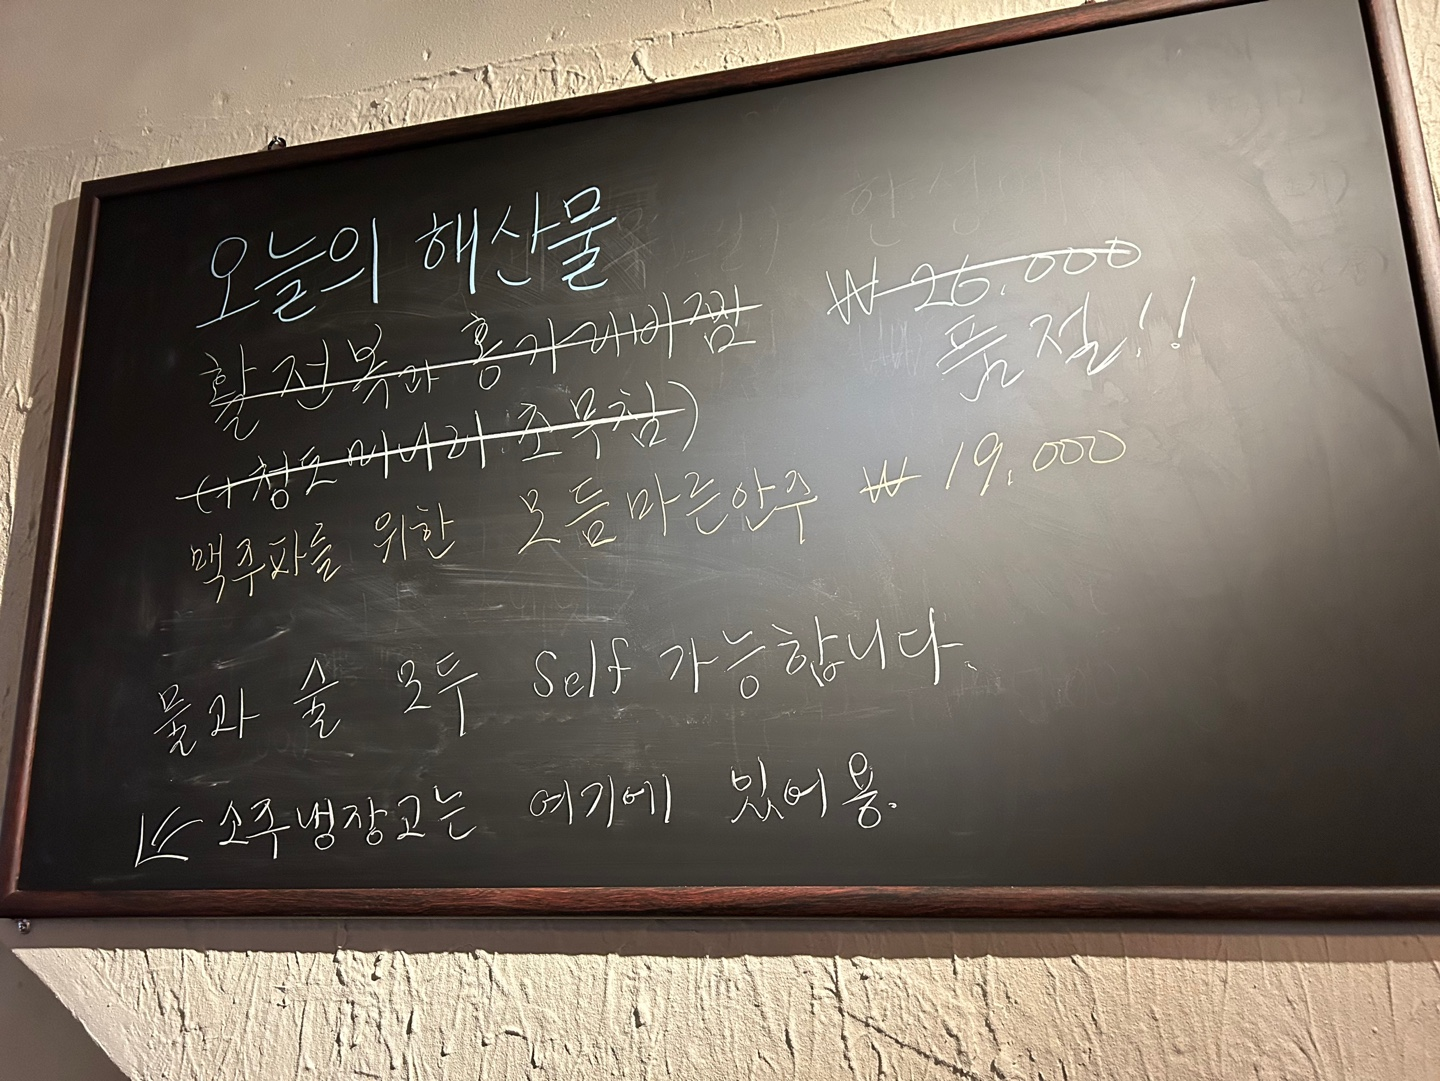 오늘의 해산물
활전복과 홍가리비찜 ₩ 26.000
품절!!
(+청도미나리 초무침)
맥주파를 위한 모듬마른안주 ₩ 19.000
물과 술 모두 Self 가능합니다.
소주냉장고는 여기에 있어용.